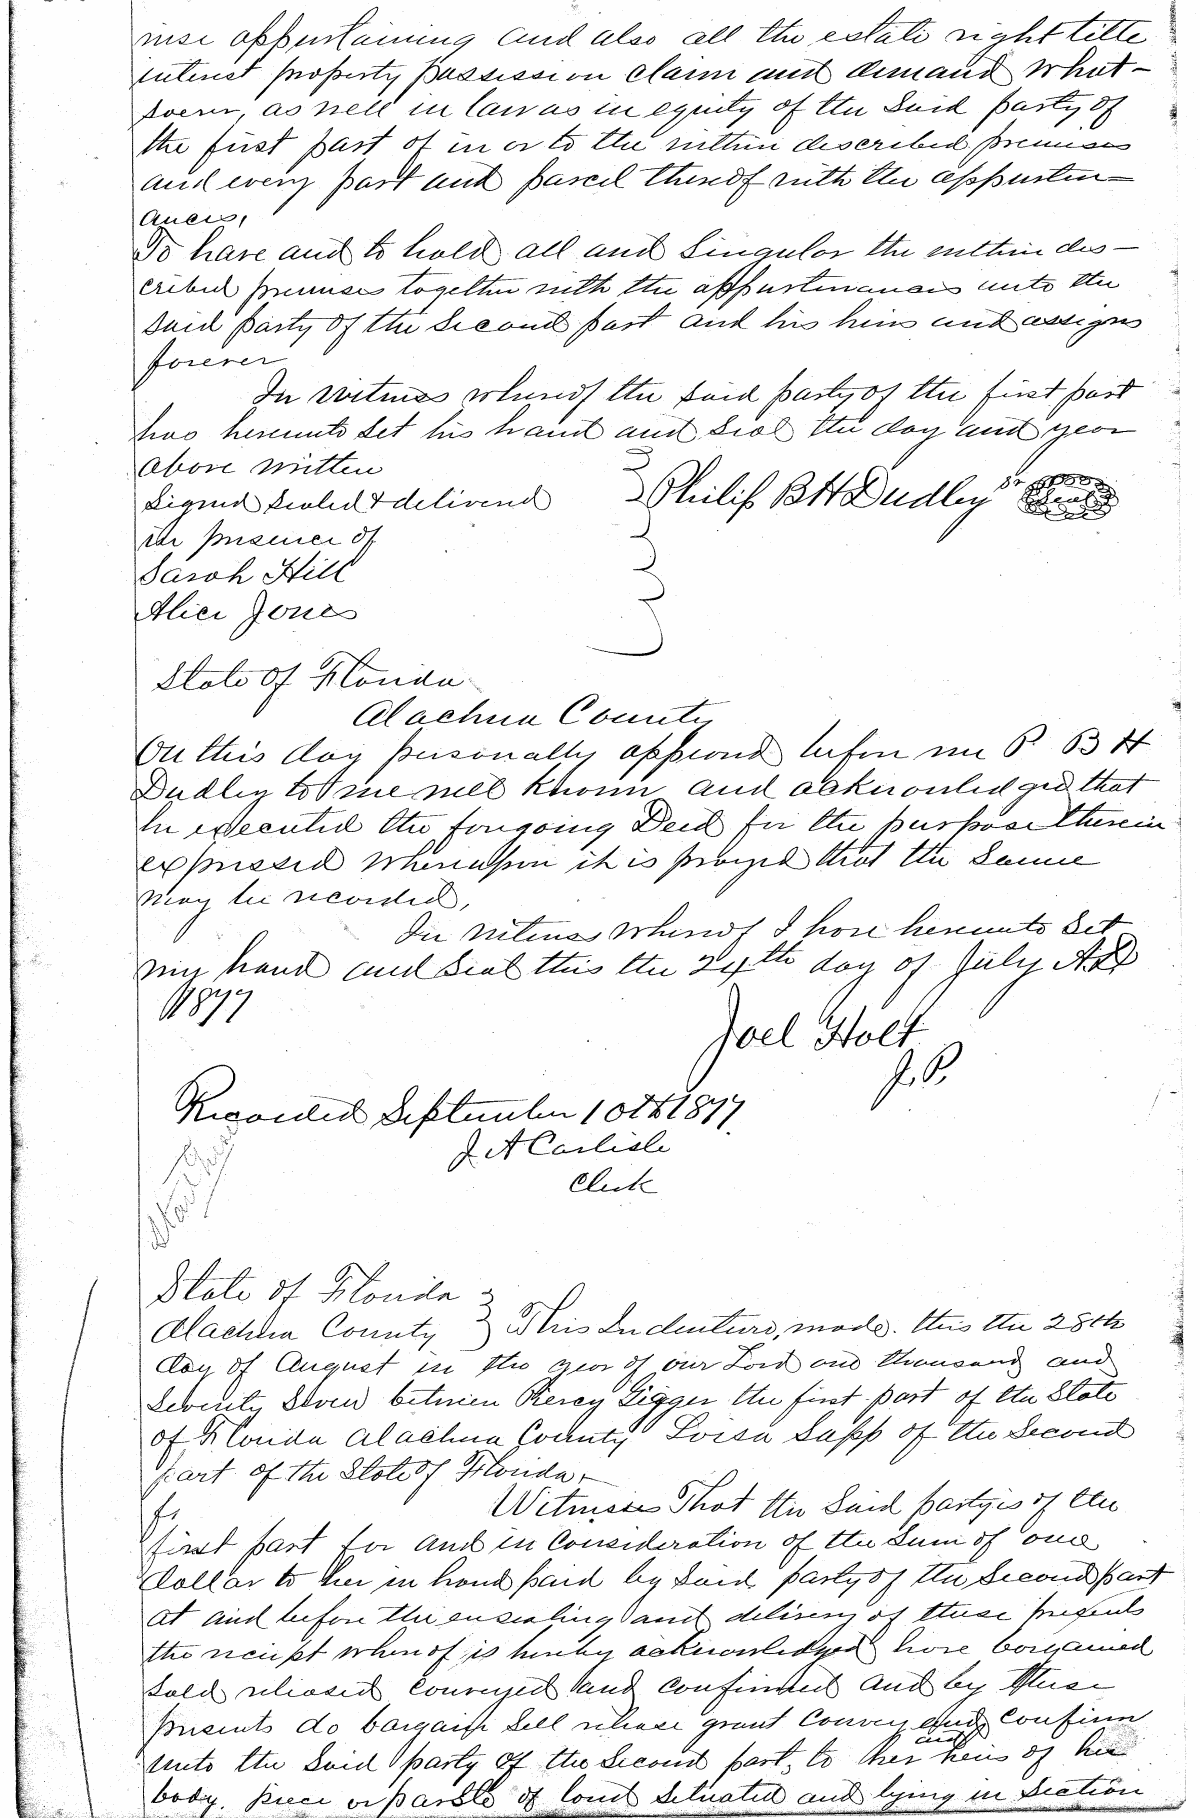 wise appertaining and also all the estate right title
interest property possession claim and demand what-
soever, as well in law as in equity of the said party of
the first part of in or to the within described premises
and every part and parcel thereof with the appurten-
ances,
To have and to hold all and Singular the within des-
cribed premises together with the appurtenances unto the
said party of the second part and his heirs and assigns
forever
In witness whereof the said party of the first part
has hereunto set his hand and seal the day and year
above written
Signed sealed & delivered
Philip B H Dudley Sr Seal
in presence of
Sarah Hill
Alice Jones
State of Florida
Alachua County
On this day personally appeared before me P B H
Dudley to me well known and acknowledged that
he executed the foregoing Deed for the purpose therein
expressed whereupon it is prayed that the same
may be recorded,
In witness whereof I have hereunto set
my hand and seal this the 24th day of July AD
1877
Joel Holt
J.P.
Recorded September 10th 1877.
J A Carlisle
Clerk
State of Florida
Alachua County This Indenture, made. this the 28th
day of August in the year of our Lord one thousand and
seventy seven between Percy Gigger the first part of the State
of Florida Alachua County Loisa Sapp of the second
part of the State of Florida,
Witness That the said partyis of the
fi
first part for and in consideration of the sum of one
dollar to her in hand paid by said party of the second part
at and before the ensealing and delivery of these presents
the receipt whereof is hereby acknowledged have bargained
sold released conveyed and confirmed and by these
presents do bargain sell release grant convey and confirm
unto the said party of the second part, to her and heirs of her
body, piece or parsle of land situated and lying in Section